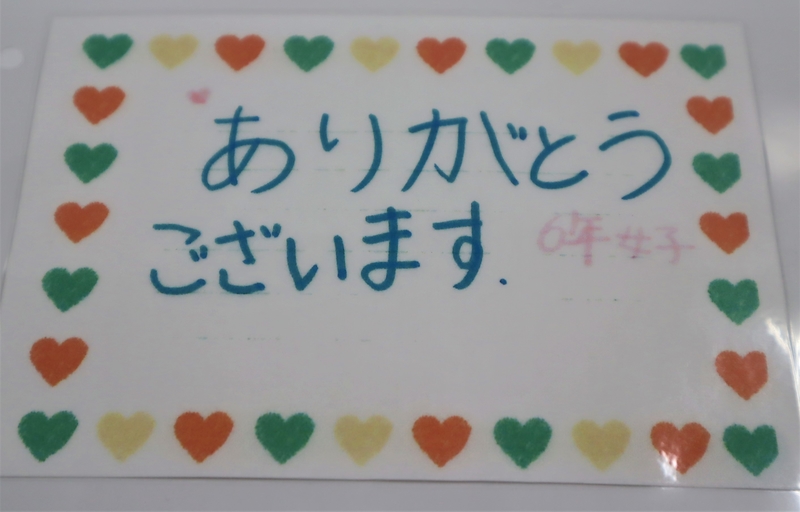 ありがとう
ございます.
6年女子